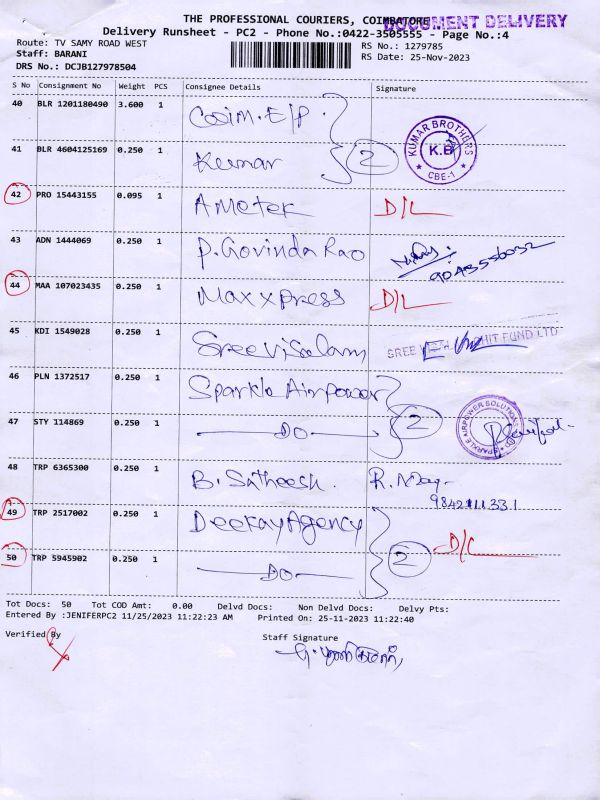 THE PROFESSIONAL COURIERS, COIMBATORE
DOCUMENT DELIVERY
Delivery Runsheet - PC2 - Phone No.:0422-3505555 - Page No.:4
Route: TV SAMY ROAD WEST
RS No.: 1279785
Staff: BARANI
RS Date: 25-Nov-2023
DRS No.: DCJB127978504
S No Consignment No Weight PCS Consignee Details Signature
40 BLR 1201180490 3.600 1 Cosim.E/P.
41 BLR 4604125169 0.250 1 Kumar 2
KUMAR BROTHERS
K.B
CBE-1
42 PRO 15443155 0.095 1 AMetek D/L
43 ADN 1444069 0.250 1 P. Govinda Rao
9043556032
44 MAA 107023435 0.250 1 Maxxpress D/L
45 KDI 1549028 0.250 1 Sree Visalam
SREE CHIT FUND LTD
46 PLN 1372517 0.250 1 Sparkle Airpower
47 STY 114869 0.250 1 DO 2
SPARKLE AIRPOWER SOLUTIONS
48 TRP 6365300 0.250 1 B. Satheesh.
49 TRP 2517002 0.250 1 Deekay Agency
50 TRP 5945902 0.250 1 DO 2 D/L
Tot Docs: 50 Tot COD Amt: 0.00 Delvd Docs: Non Delvd Docs: Delvy Pts:
Entered By :JENIFERPC2 11/25/2023 11:22:23 AM Printed On: 25-11-2023 11:22:40
Verified By
Staff Signature